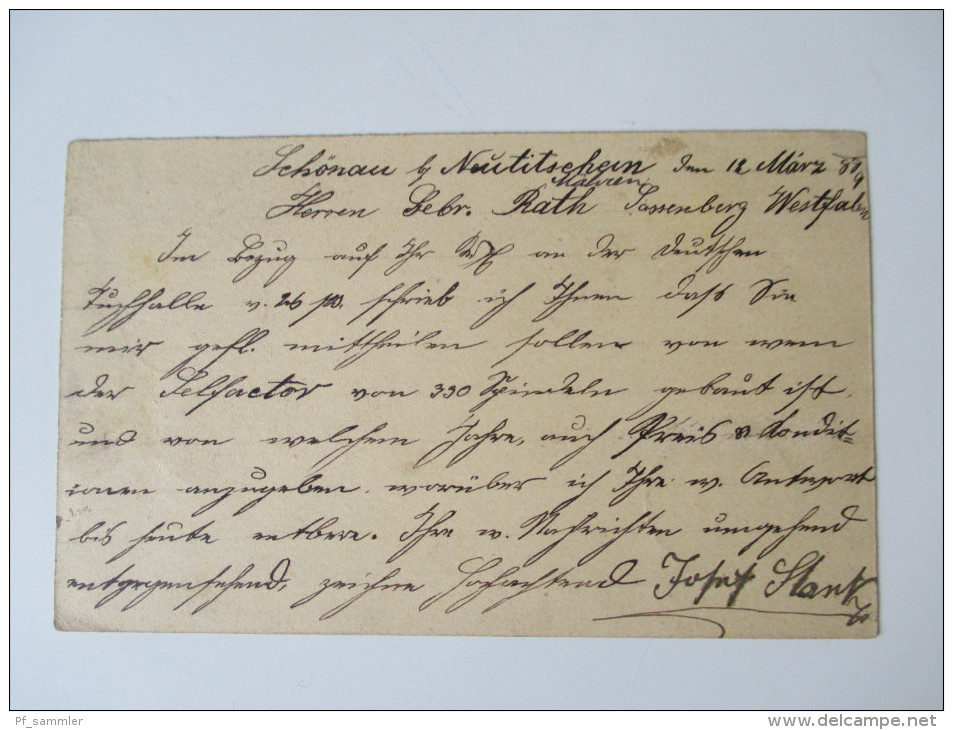 Schönau b/ Neutitschein den 12 März 89
Mähren
Herren Gebr. Rath Sassenberg Westfalen
Im Bezug auf Ihr an der Deutschen
Tuchhalle v. 26 schrieb ich Ihnen dass Sie
mir gefl. mittheilen sollen von wem
der Selfactor von 330 Spindeln gebaut ist
und von welchem Jahre, auch Preis & Kondit-
ionen anzugeben. worüber ich Ihre w. Antwort
bis heute entbere. Ihre w. Nachrichten umgehend
entgegensehend, zeichne Hochachtend Josef
Pf_sammler
www.delcampe.net